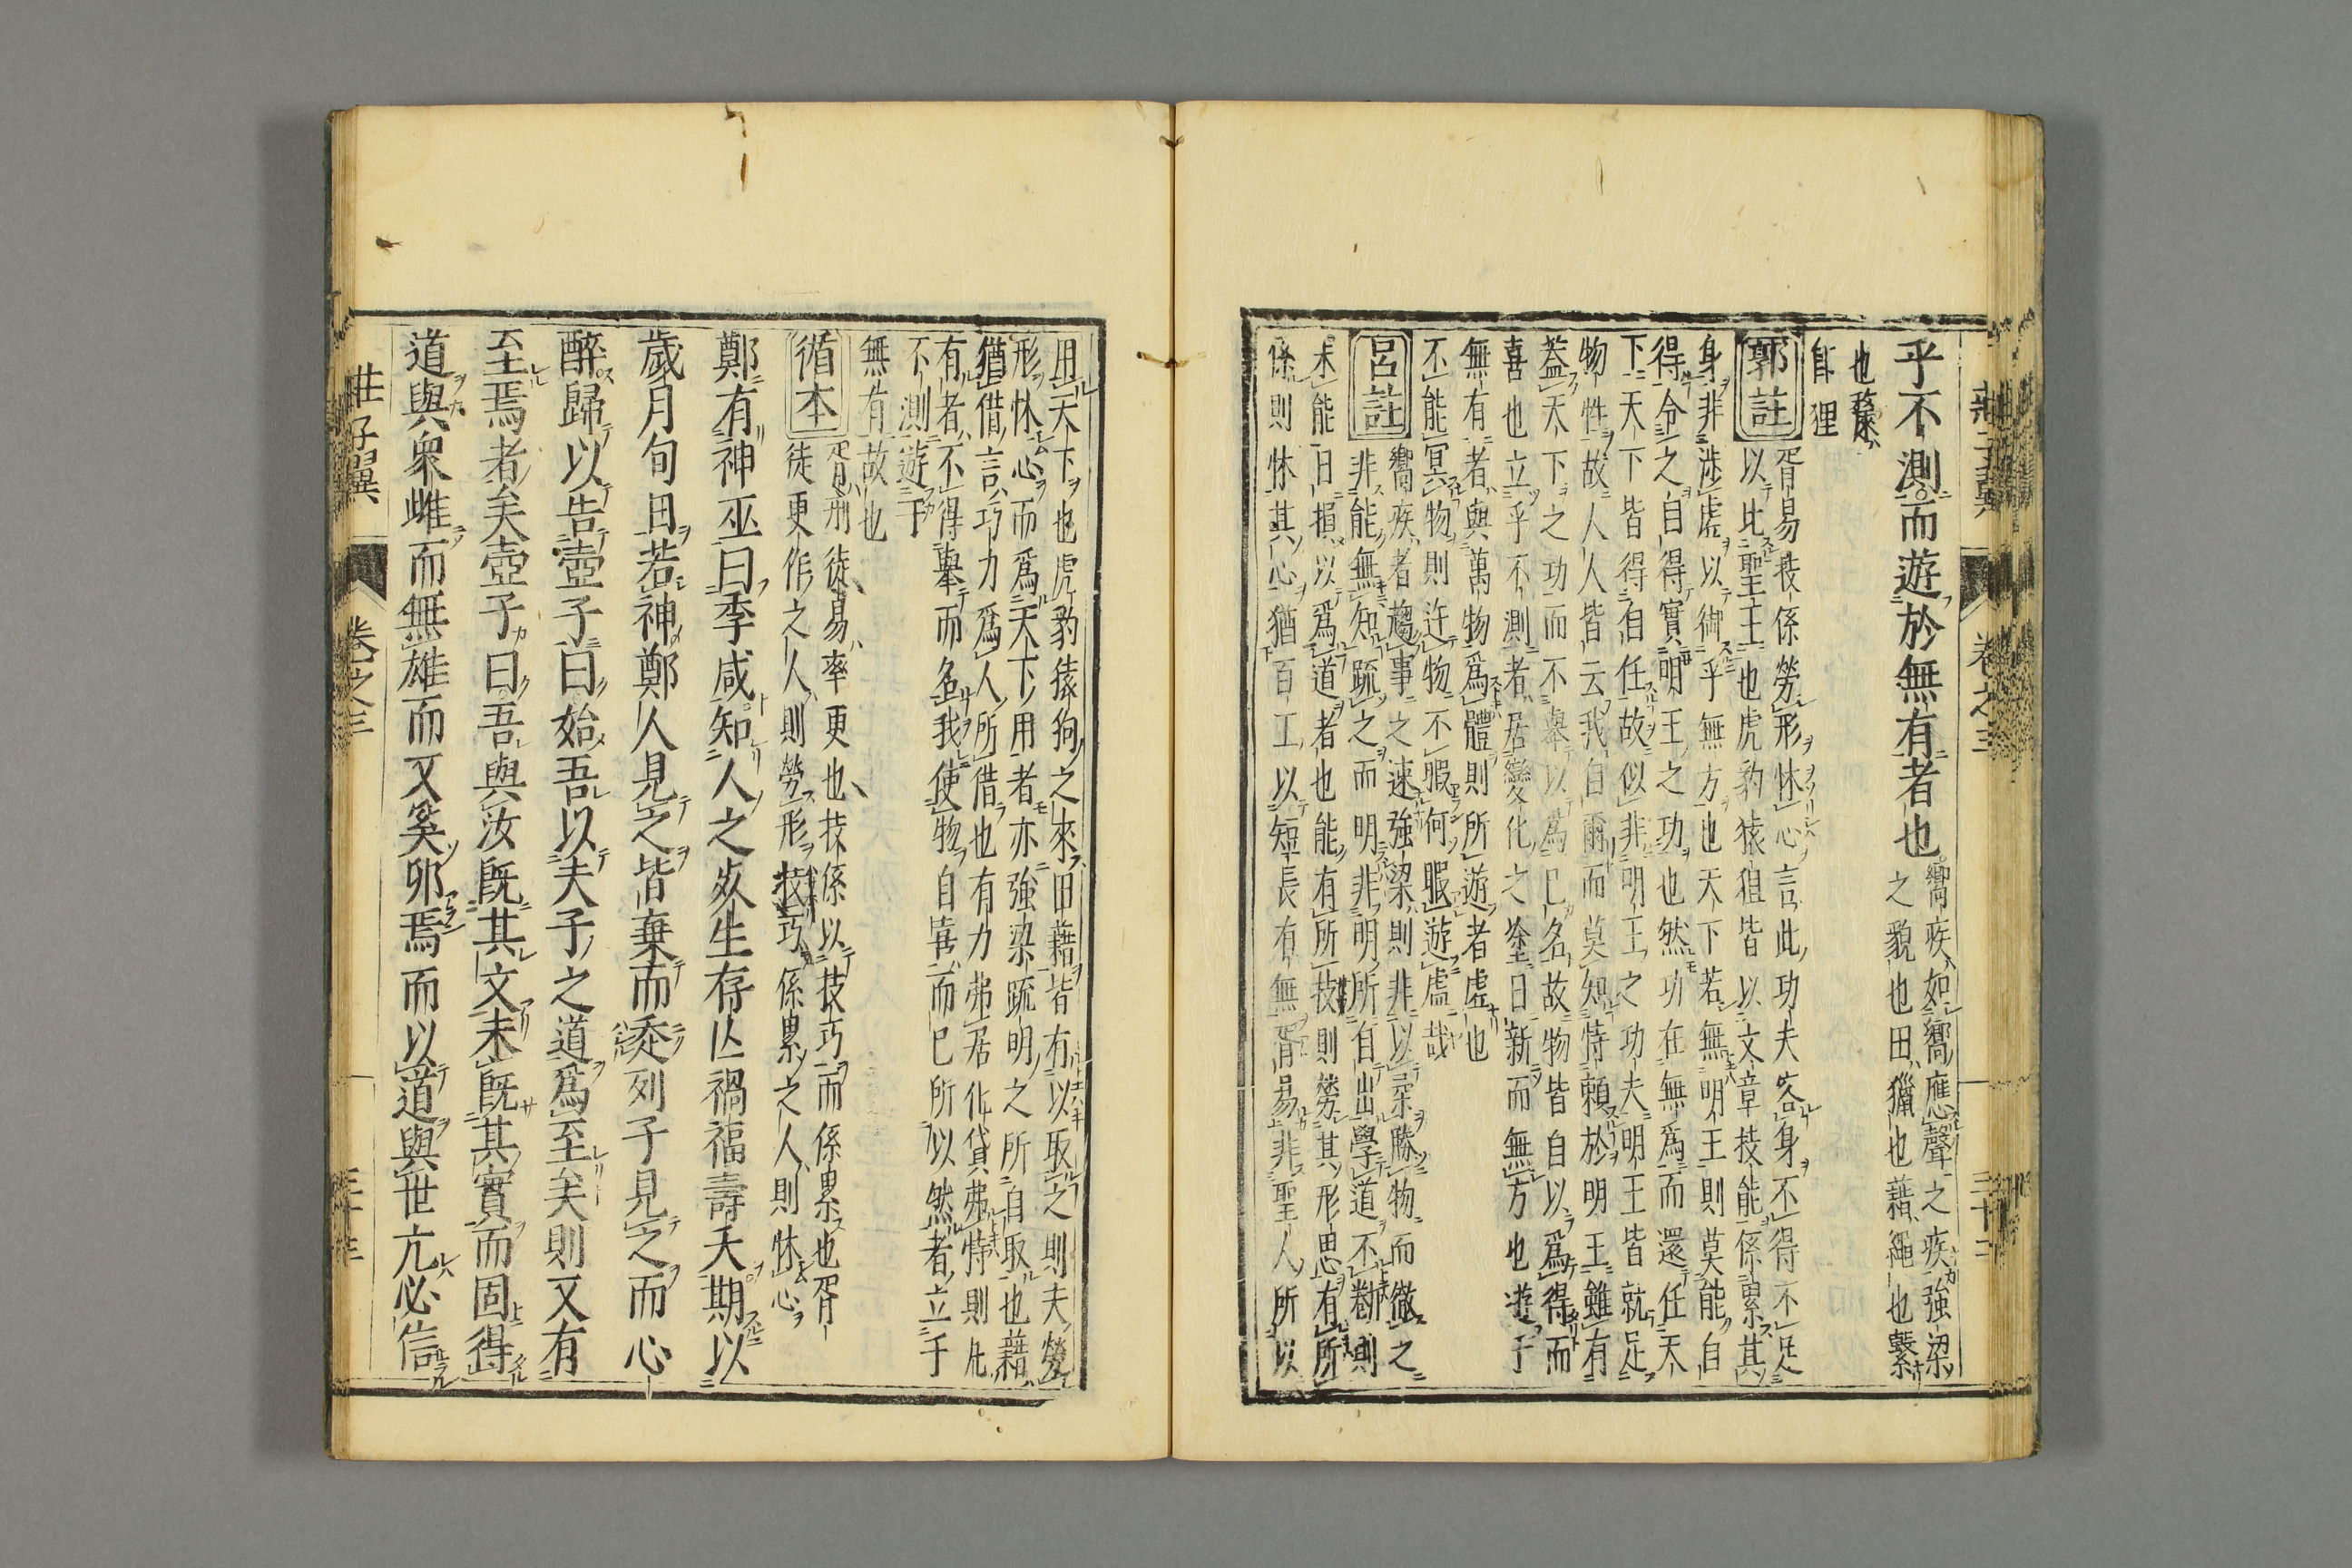 莊子翼 卷之三 三十二
乎不測而遊於無有者也嚮疾如嚮應聲之疾強梁
之貌也田獵也藉繩也繫
也斄
音狸
郭註 胥易技係勞形怵心言此功夫容身不得不足
以比聖王也虎豹猿狙皆以文章技能係累其
身非涉虛以御乎無方也天下若無明王則莫能自
得令之自得實明王之功也然功在無爲而還任天
下天下皆得自任故似非明王之功夫明王皆就足
物性故人人皆云我自爾而莫知恃賴於明王雖有
蓋天下之功而不舉以爲己名故物皆自以爲得而
喜也立乎不測者居變化之塗日新而無方也遊于
無有者與萬物爲體則所遊者虛也
不能冥物則迕物不暇何暇遊虛哉
呂註 嚮疾者趨事之速強梁則非以柔勝物而徹之
非能無知疏之而明非明所自出學道不勌則
未能日損以爲道者也能有所技則勞其形思有所
係則怵其心猶百工以短長有無胥易非聖人所以
田天下也虎豹猿狗之來田藉皆有以取之則夫勞
形怵心而爲天下用者亦強梁疏明之所自取也藉
猶借言巧力爲人所借也有力弗居化貸弗恃則凡
有者不得舉而名我使物自喜而已所以然者立于
不測遊于
無有故也
循本 胥刑徒易率更也技係以技巧而係累也胥
徒更作之人則勞形技巧係累之人則怵心
鄭有神巫曰季咸知人之死生存亾禍福壽夭期以
歲月旬日若神鄭人見之皆棄而走列子見之而心
醉歸以告壺子曰始吾以夫子之道爲至矣則又有
至焉者矣壺子曰吾與汝既其文未既其實而固得
道與衆雌而無雄而又奚卵焉而以道與世亢必信
莊子翼 卷之三